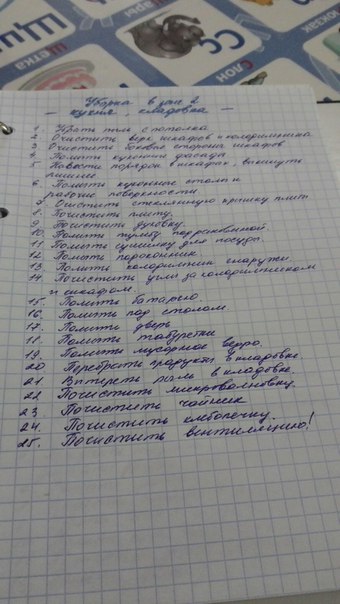 Щётка
Слон
Рюкзак
Уборка в зоне 2
- кухня, кладовка -
1. Убрать пыль с потолка
2. Очистить верх шкафов и холодильника
3. Очистить боковые стороны шкафов
4. Помыть кухонные фасады
5. Навести порядок в шкафах, выкинуть
лишнее
6. Помыть кухонные столы и
рабочие поверхности
7. Очистить стеклянную крышку плиты
8. Почистить плиту.
9. Почистить духовку.
10. Помыть тумбу под раковиной.
11. Помыть сушилку для посуды.
12. Помыть подоконник.
13. Помыть холодильник снаружи.
14. Почистить углы за холодильником
и шкафом.
15. Помыть батарею
16. Помыть под столом.
17. Помыть дверь
18. Помыть табуретки
19. Помыть мусорное ведро.
20. Перебрать продукты в кладовке.
21. Вытереть пыль в кладовке.
22. Почистить микроволновку.
23. Почистить чайник
24. Почистить хлебопечку.
25. Почистить вентиляцию!